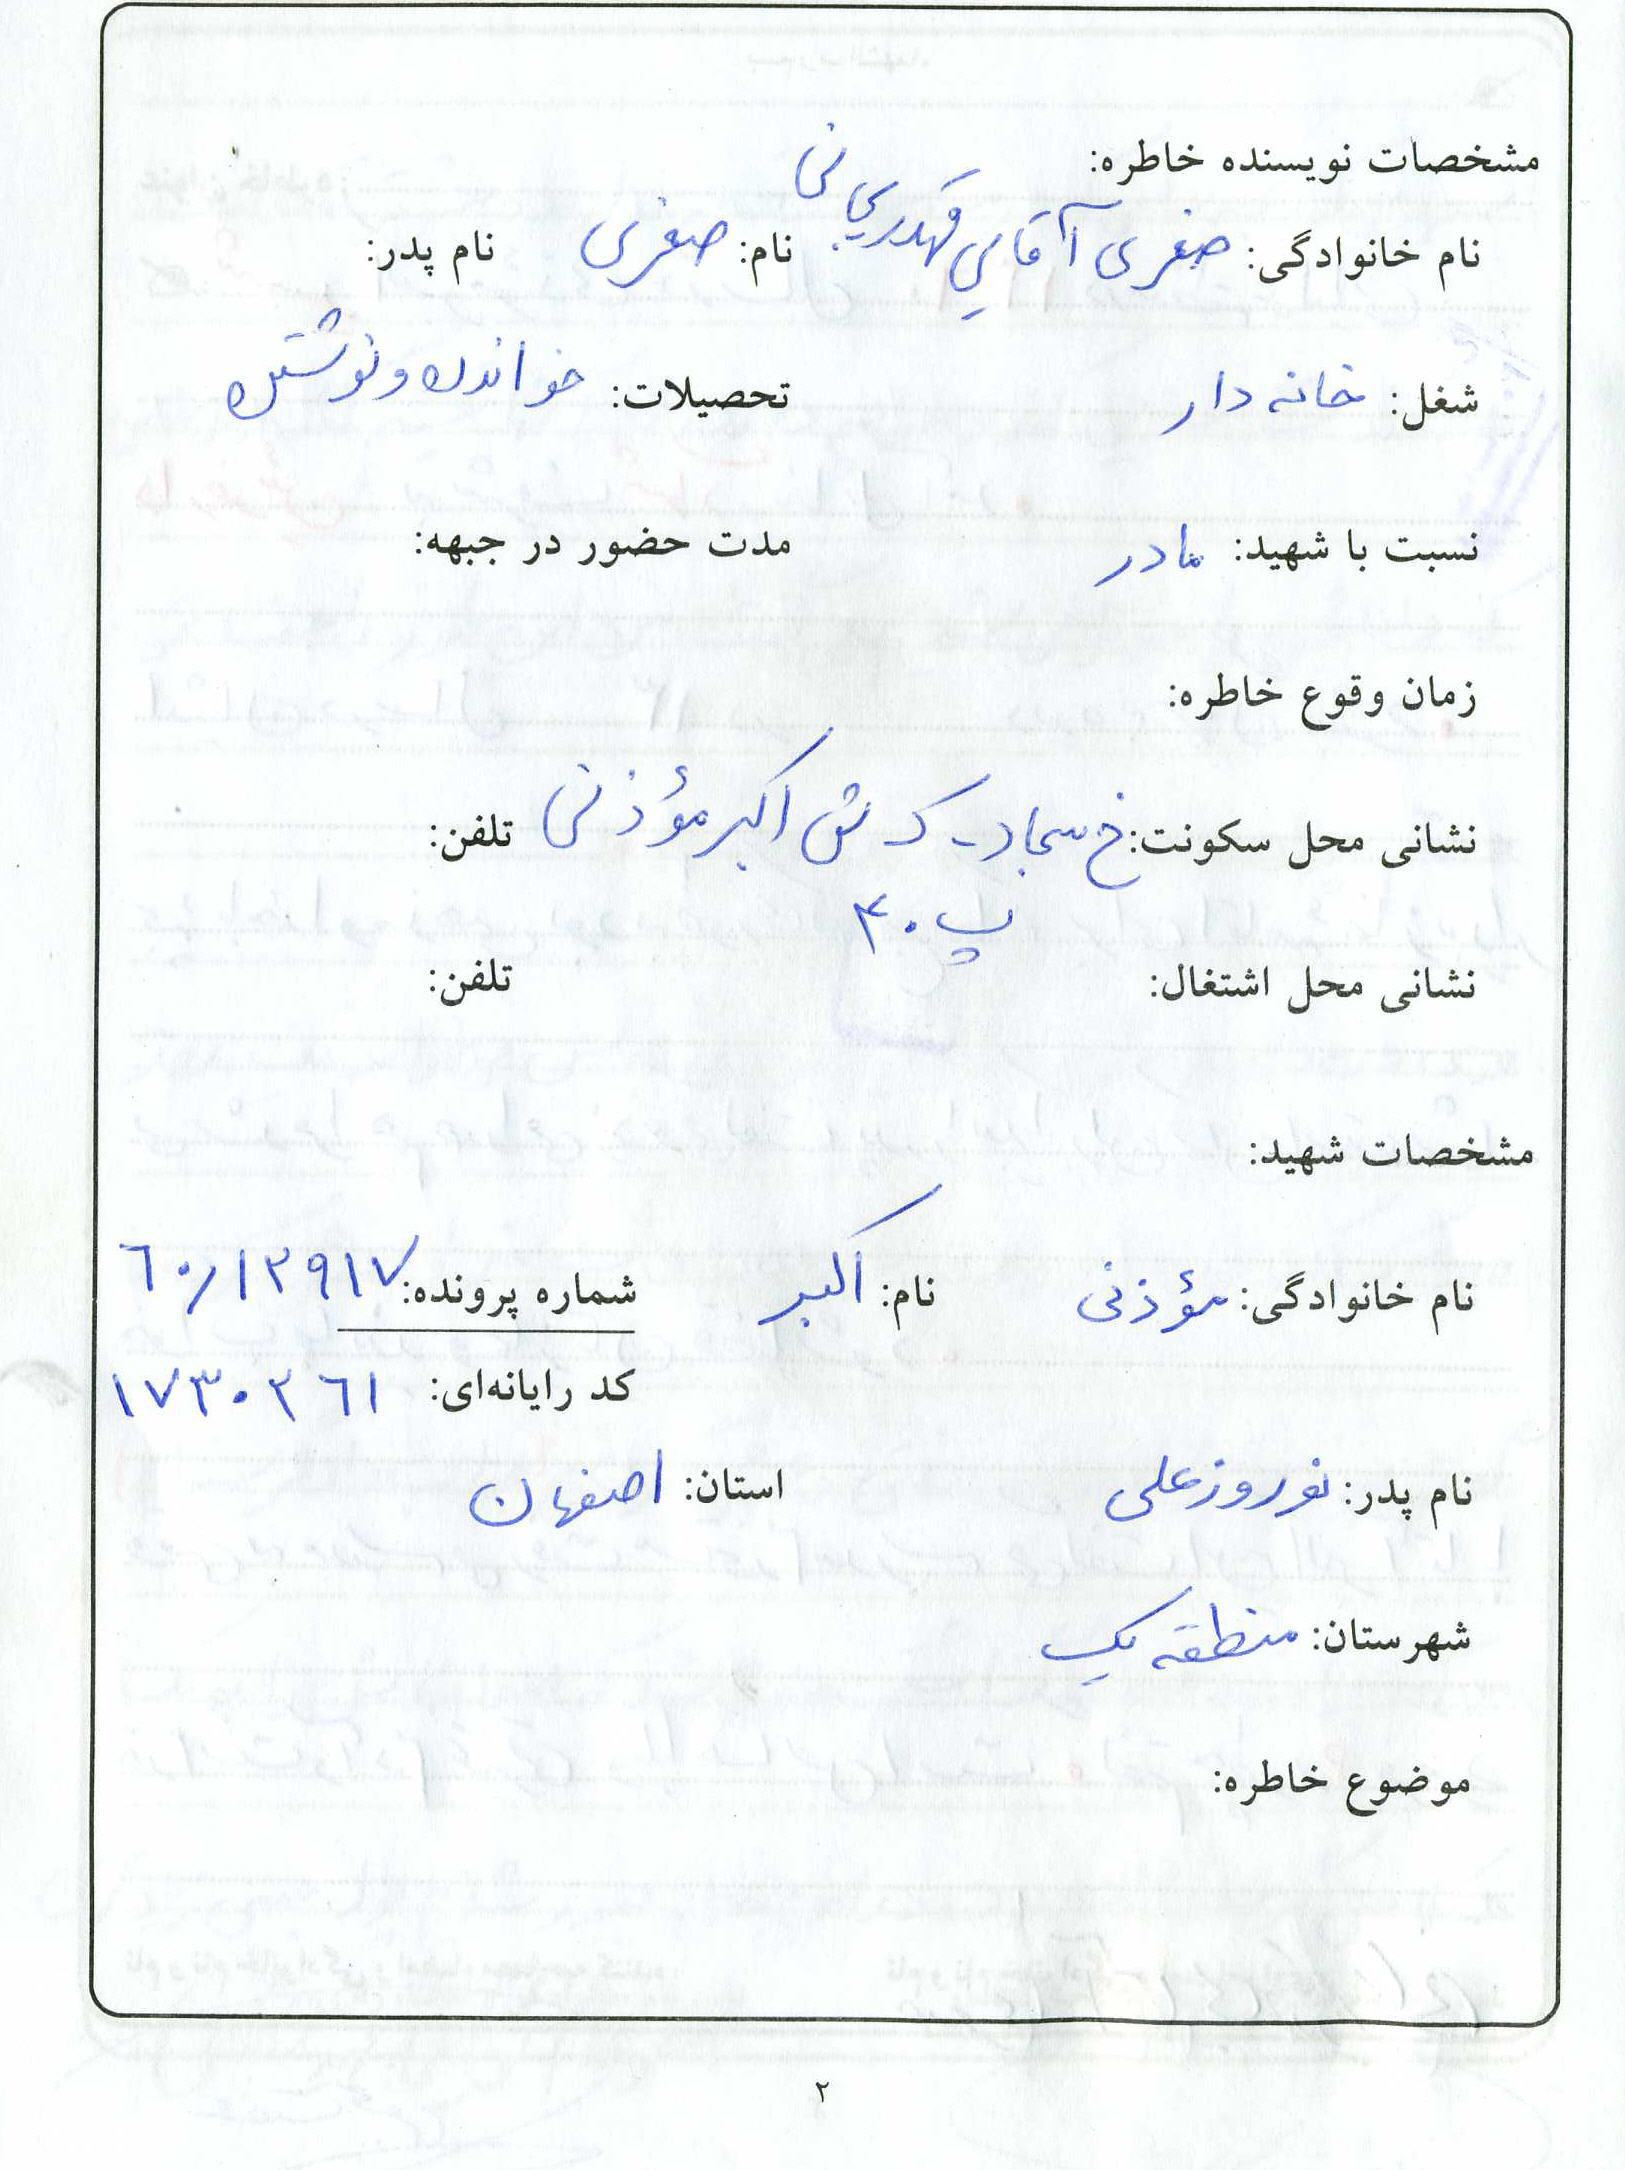 مشخصات نویسنده خاطره:
نام خانوادگی: صغری آقایی قهدریجانی نام: صغری نام پدر:
شغل: خانه دار تحصیلات: خواندن و نوشتن
نسبت با شهید: مادر مدت حضور در جبهه:
زمان وقوع خاطره:
نشانی محل سکونت: خ سجاد - ک ش اکبر مؤذنی تلفن:
پ ۴۰
نشانی محل اشتغال: تلفن:
مشخصات شهید:
نام خانوادگی: مؤذنی نام: اکبر شماره پرونده: ۶۰/۱۲۹۱۷
کد رایانه‌ای: ۱۷۳۰۲۶۱
نام پدر: نوروزعلی استان: اصفهان
شهرستان: منطقه یک
موضوع خاطره:
۲